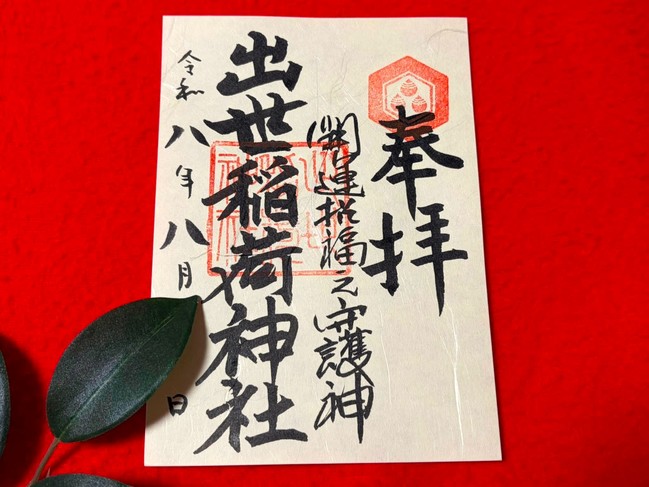 奉拝
開運招福之守護神
出世稲荷神社
令和八年八月 日